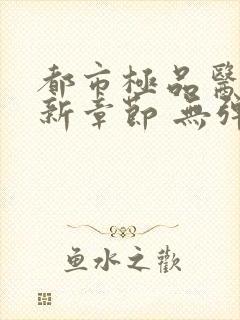 都市極品醫
新章節 無彈
魚水之歡